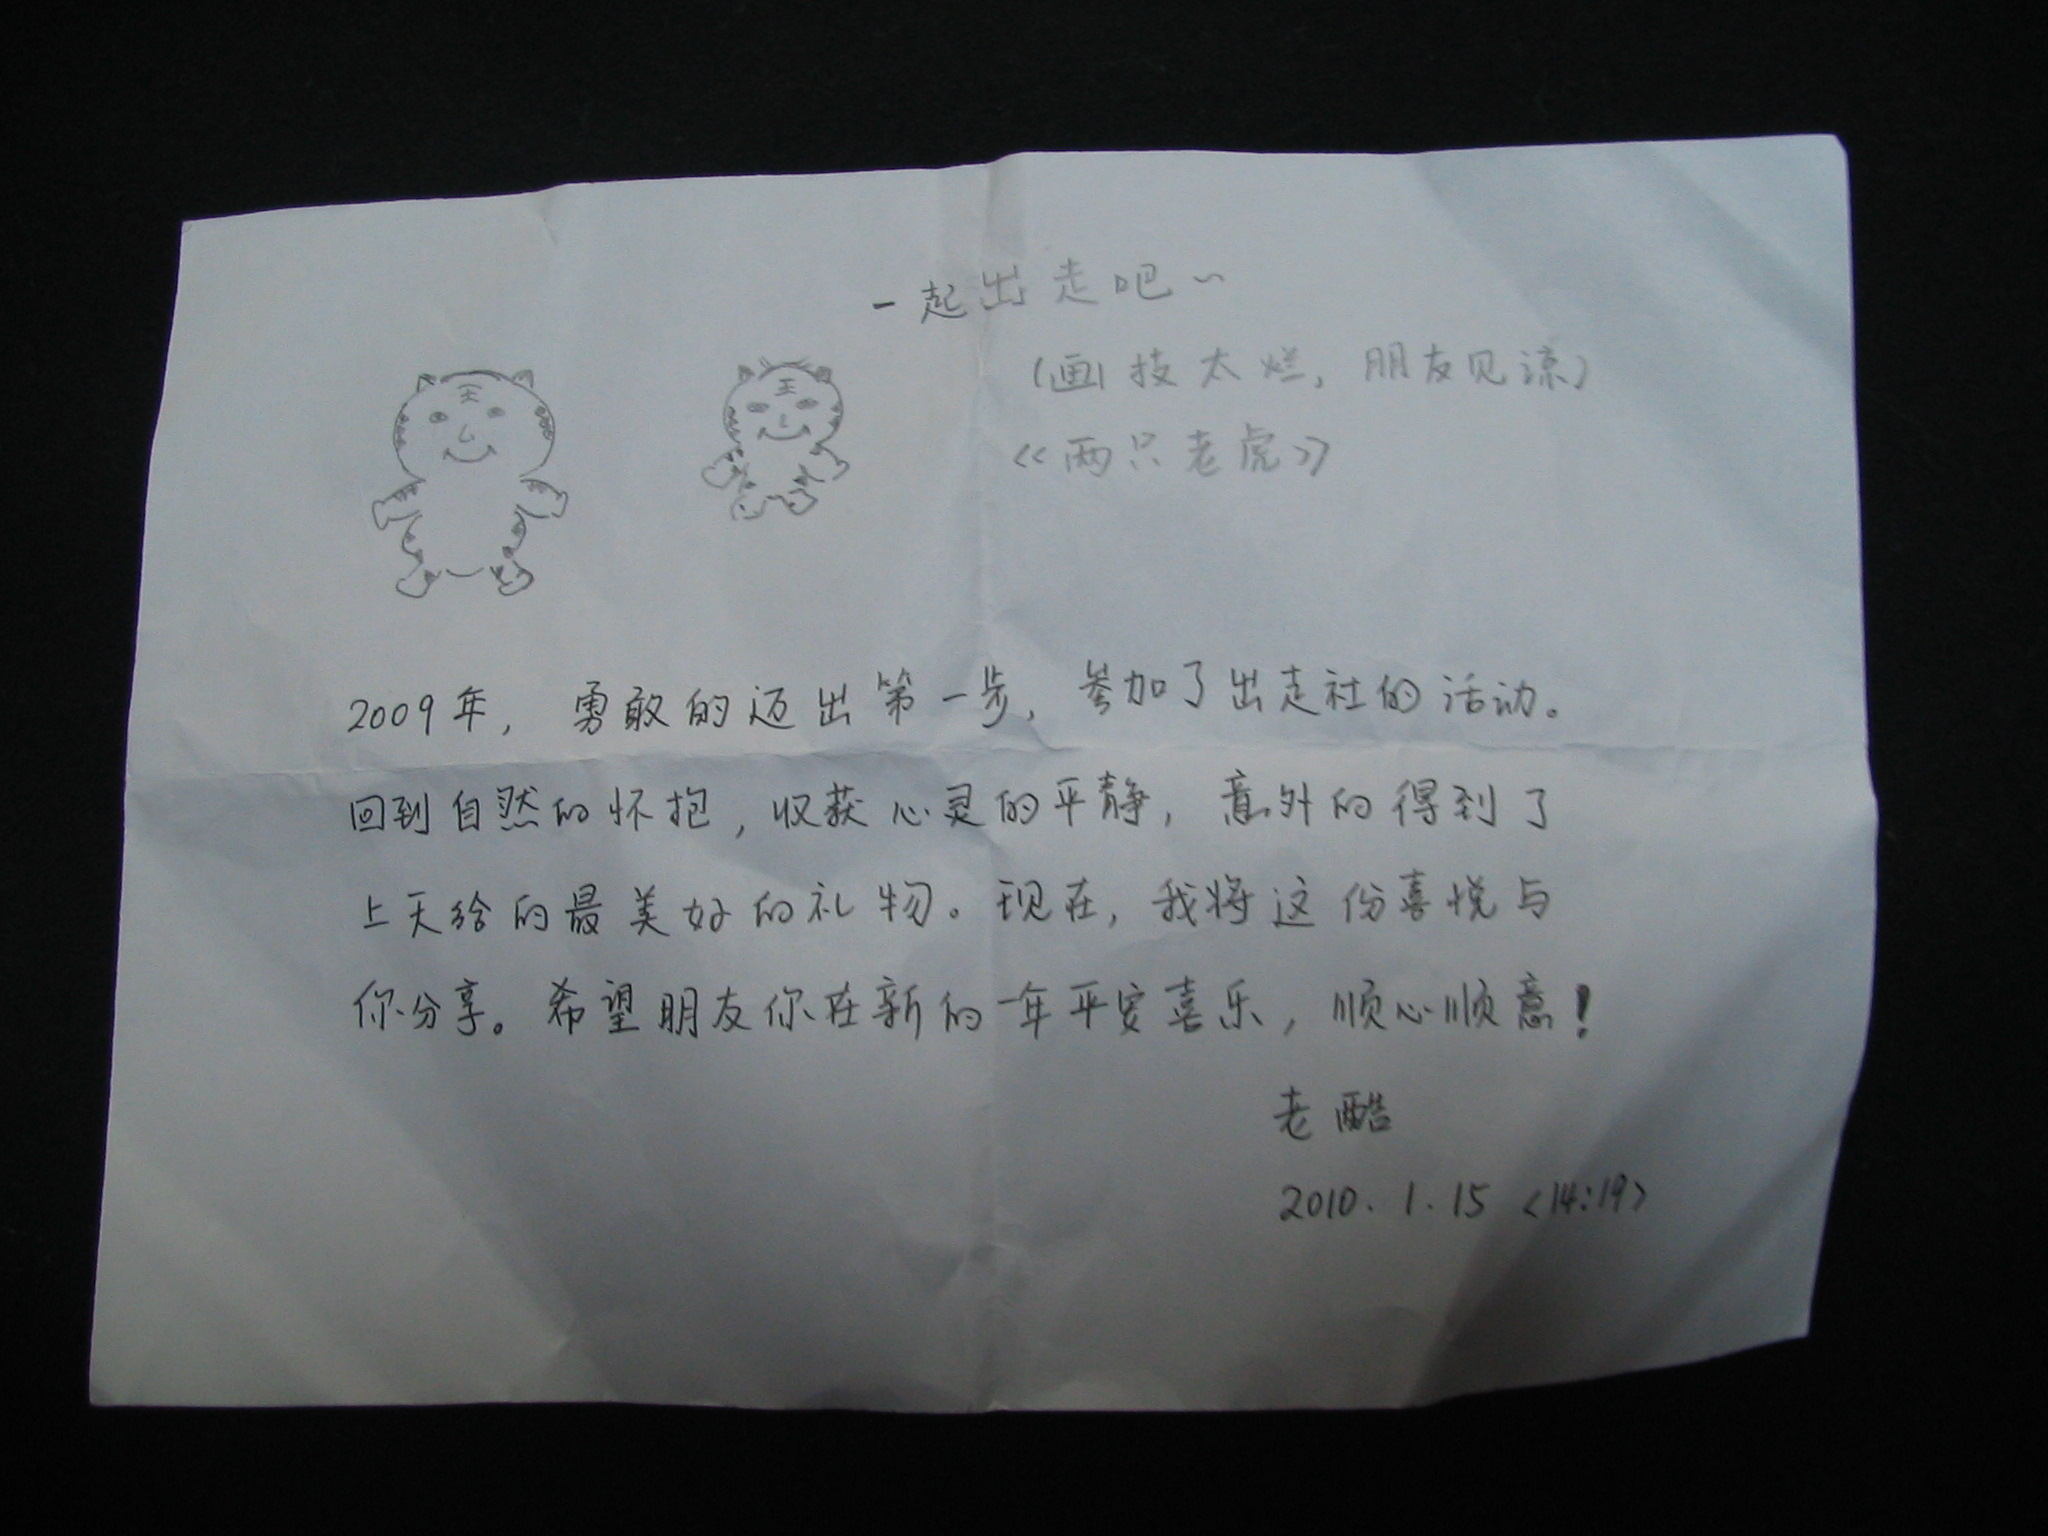 一起出走吧~
(画技太烂，朋友见谅)
《两只老虎》
2009年，勇敢的迈出第一步，参加了出走社的活动。
回到自然的怀抱，收获心灵的平静，意外的得到了
上天给的最美好的礼物。现在，我将这份喜悦与
你分享。希望朋友你在新的一年平安喜乐，顺心顺意！
老酷
2010.1.15 <14:19>